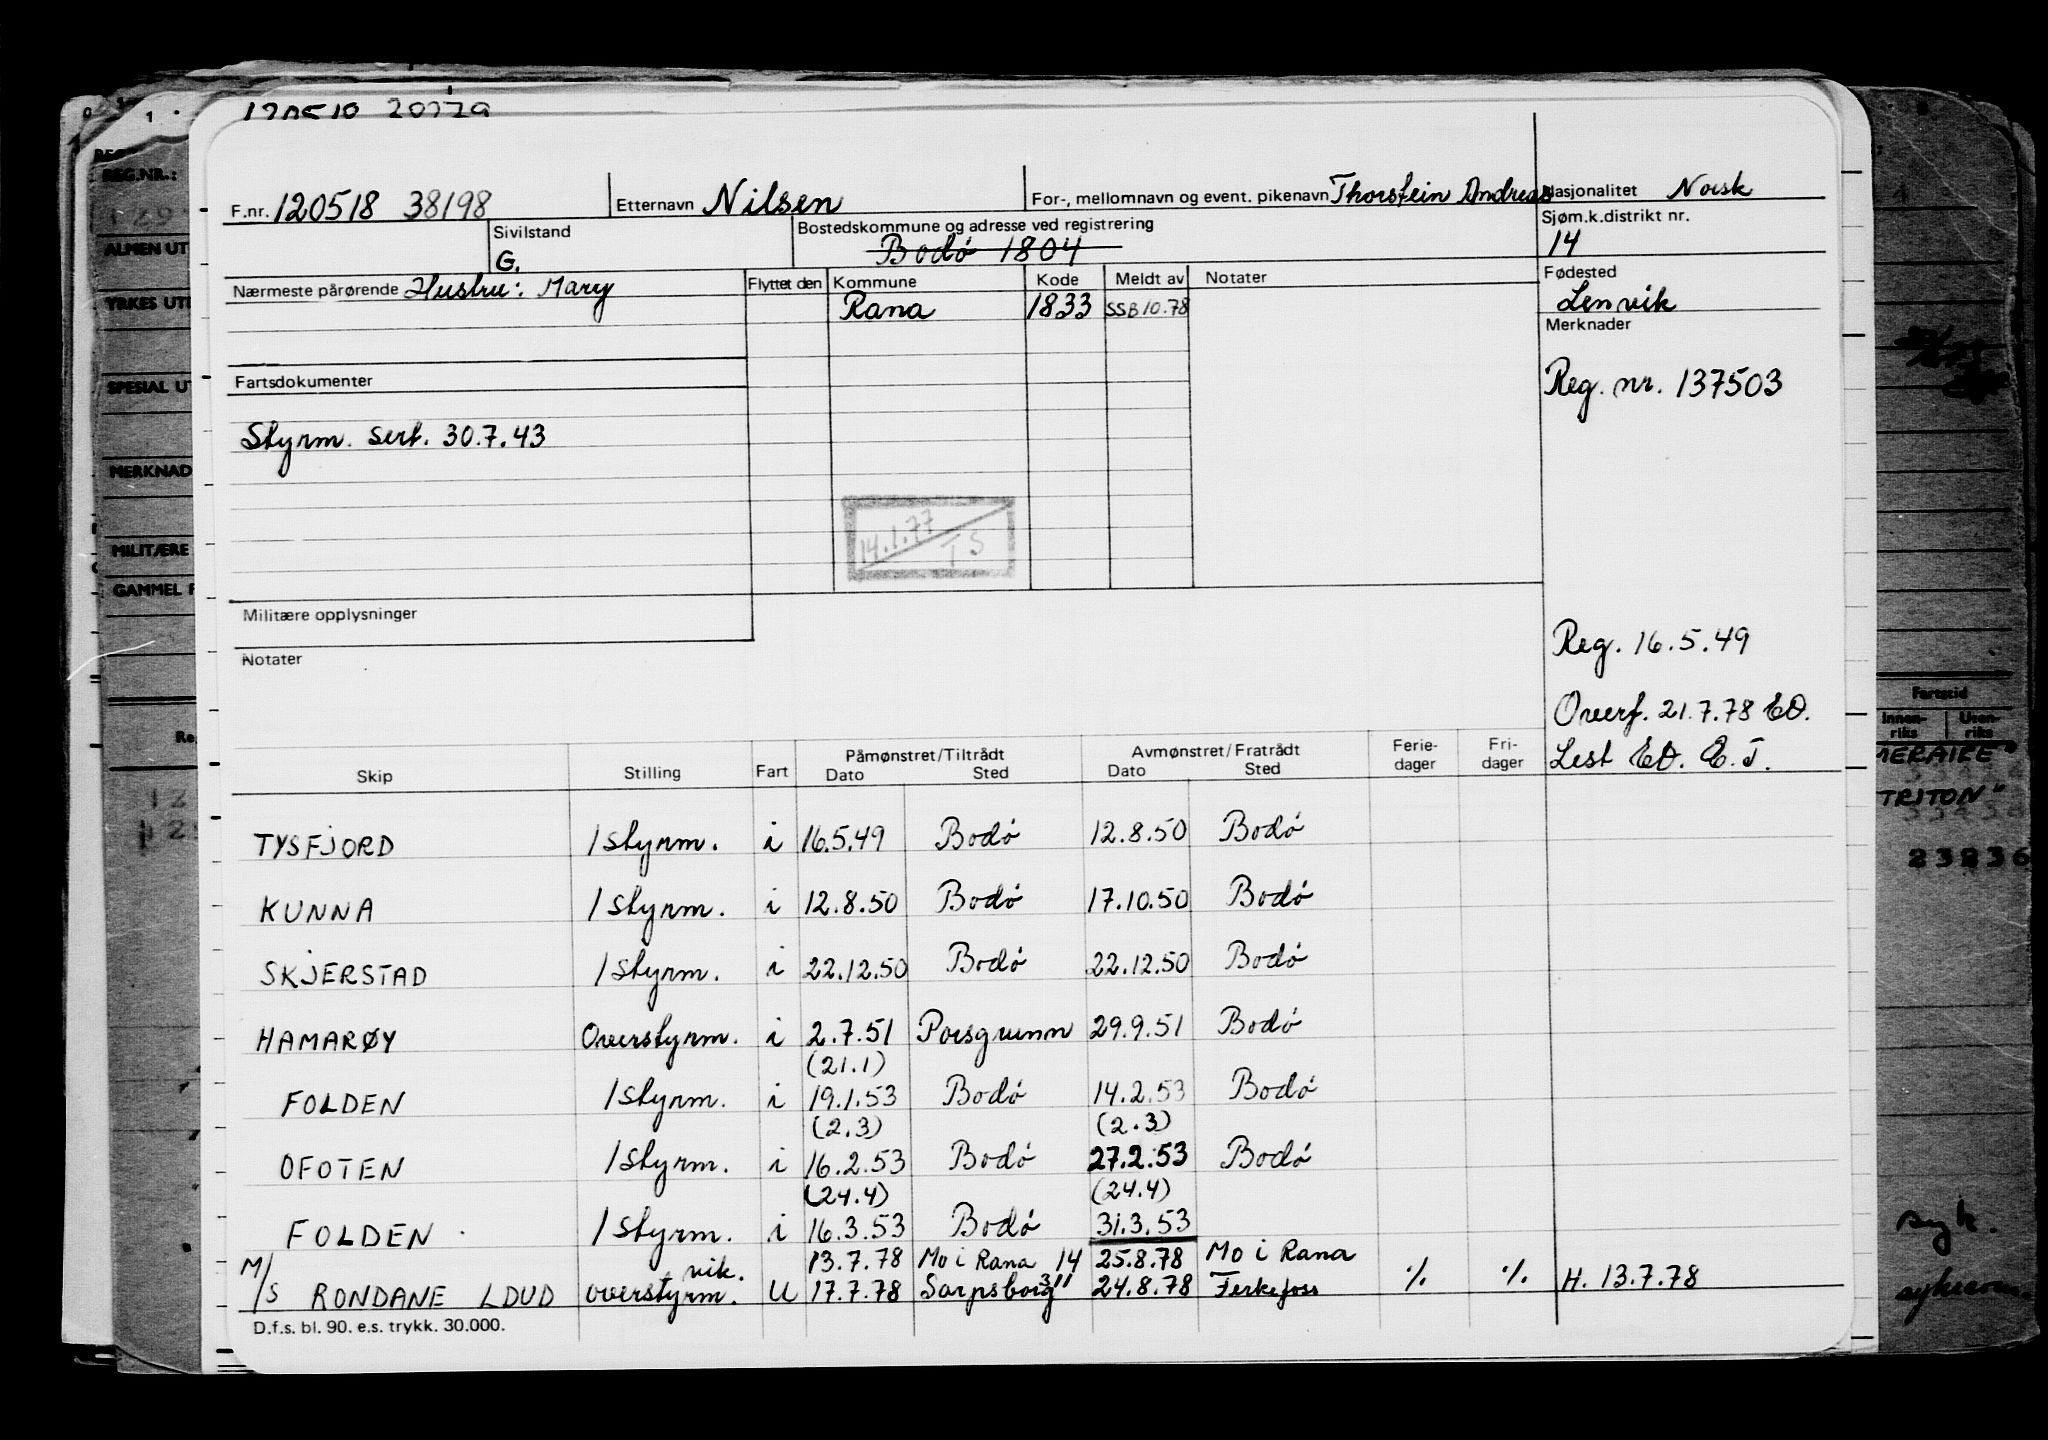 F.nr. 120518 38198 Etternavn Nilsen For-, mellomnavn og event. pikenavn Thorstein Andreas Nasjonalitet Norsk
Sivilstand G. Bostedskommune og adresse ved registrering Bodø 1804 Sjøm.k.distrikt nr. 14
Nærmeste pårørende Hustru: Mary Flyttet den Kommune Kode Meldt av Notater Fødested
Rana 1833 SSB 10.78 Lenvik
Merknader
Fartsdokumenter Reg. nr. 137503
Styrm. sert. 30.7.43
14.1.77
TS
Militære opplysninger
Notater Reg. 16.5.49
Overf. 21.7.78 EO.
Lest EO. E.T.
Skip Stilling Fart Påmønstret/Tiltrådt Dato Sted Avmønstret/Fratrådt Dato Sted Ferie-dager Fri-dager
TYSFJORD 1 styrm. i 16.5.49 Bodø 12.8.50 Bodø
KUNNA 1 styrm. i 12.8.50 Bodø 17.10.50 Bodø
SKJERSTAD 1 styrm. i 22.12.50 Bodø 22.12.50 Bodø
HAMARØY Overstyrm. i 2.7.51 Porsgrunn 29.9.51 Bodø
(21.1)
FOLDEN 1 styrm. i 19.1.53 Bodø 14.2.53 Bodø
(2.3) (2.3)
OFOTEN 1 styrm. i 16.2.53 Bodø 27.2.53 Bodø
(24.4) (24.4)
FOLDEN 1 styrm. i 16.3.53 Bodø 31.3.53
vik. 13.7.78 Mo i Rana 14 25.8.78 Mo i Rana
M/S RONDANE LDUD overstyrm. U 17.7.78 Sarpsborg 24.8.78 ./. ./. H. 13.7.78
D.f.s. bl. 90. e.s. trykk. 30.000.
REG.NR.:
ALMEN UT
SPESIAL UT
MERKNAD
MILITÆRE
GAMMEL F
Fartstid
Innen-riks Uten-riks
TRITON"
23236
syk.